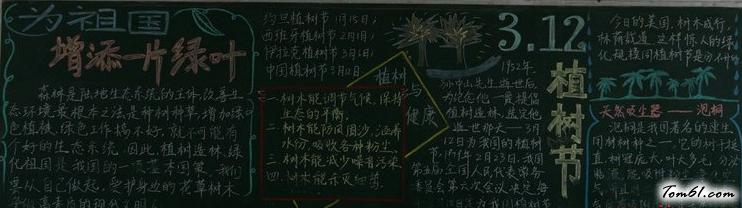 为祖国
增添一片绿叶
森林是陆地生态系统的主体,改善生
态环境,最根本之法是种树种草,增加绿
色植被,绿色工作搞不好,就不可能有
个好的生态系统。因此,植树造林,绿
化祖国是我国的一项基本国策。我们
要从自己做起,爱护身边的花草树木
约旦植树节1月15日;
西班牙植树节2月1日;
伊拉克植树节3月6日;
中国植树节3月12日
植树
与
健康
一.树木能调节气候,保持
生态的平衡.
二.树木能防风固沙,涵养
水份,吸收各种粉尘.
三.树木能减少噪音污染
四.树木能杀灭细菌.
3.12
植树节
孙中山先生逝世后,
为纪念他一贯提倡
植树造林,
逝世那天——3月
12日为我国的植树
节. 1979年2月23日,我国
第五届全国人民代表常务
委员会第六次会议决定每
年3月12日为我国植树节
今日的美国,树木成行,
林荫载道,这样惊人的绿
化规模同植树节是分不开的
天然吸尘器——泡桐
泡桐是我国著名的速生
用材树种之一。它的树干挺
直,树冠庞大,叶大多毛,分泌
Tom61.com